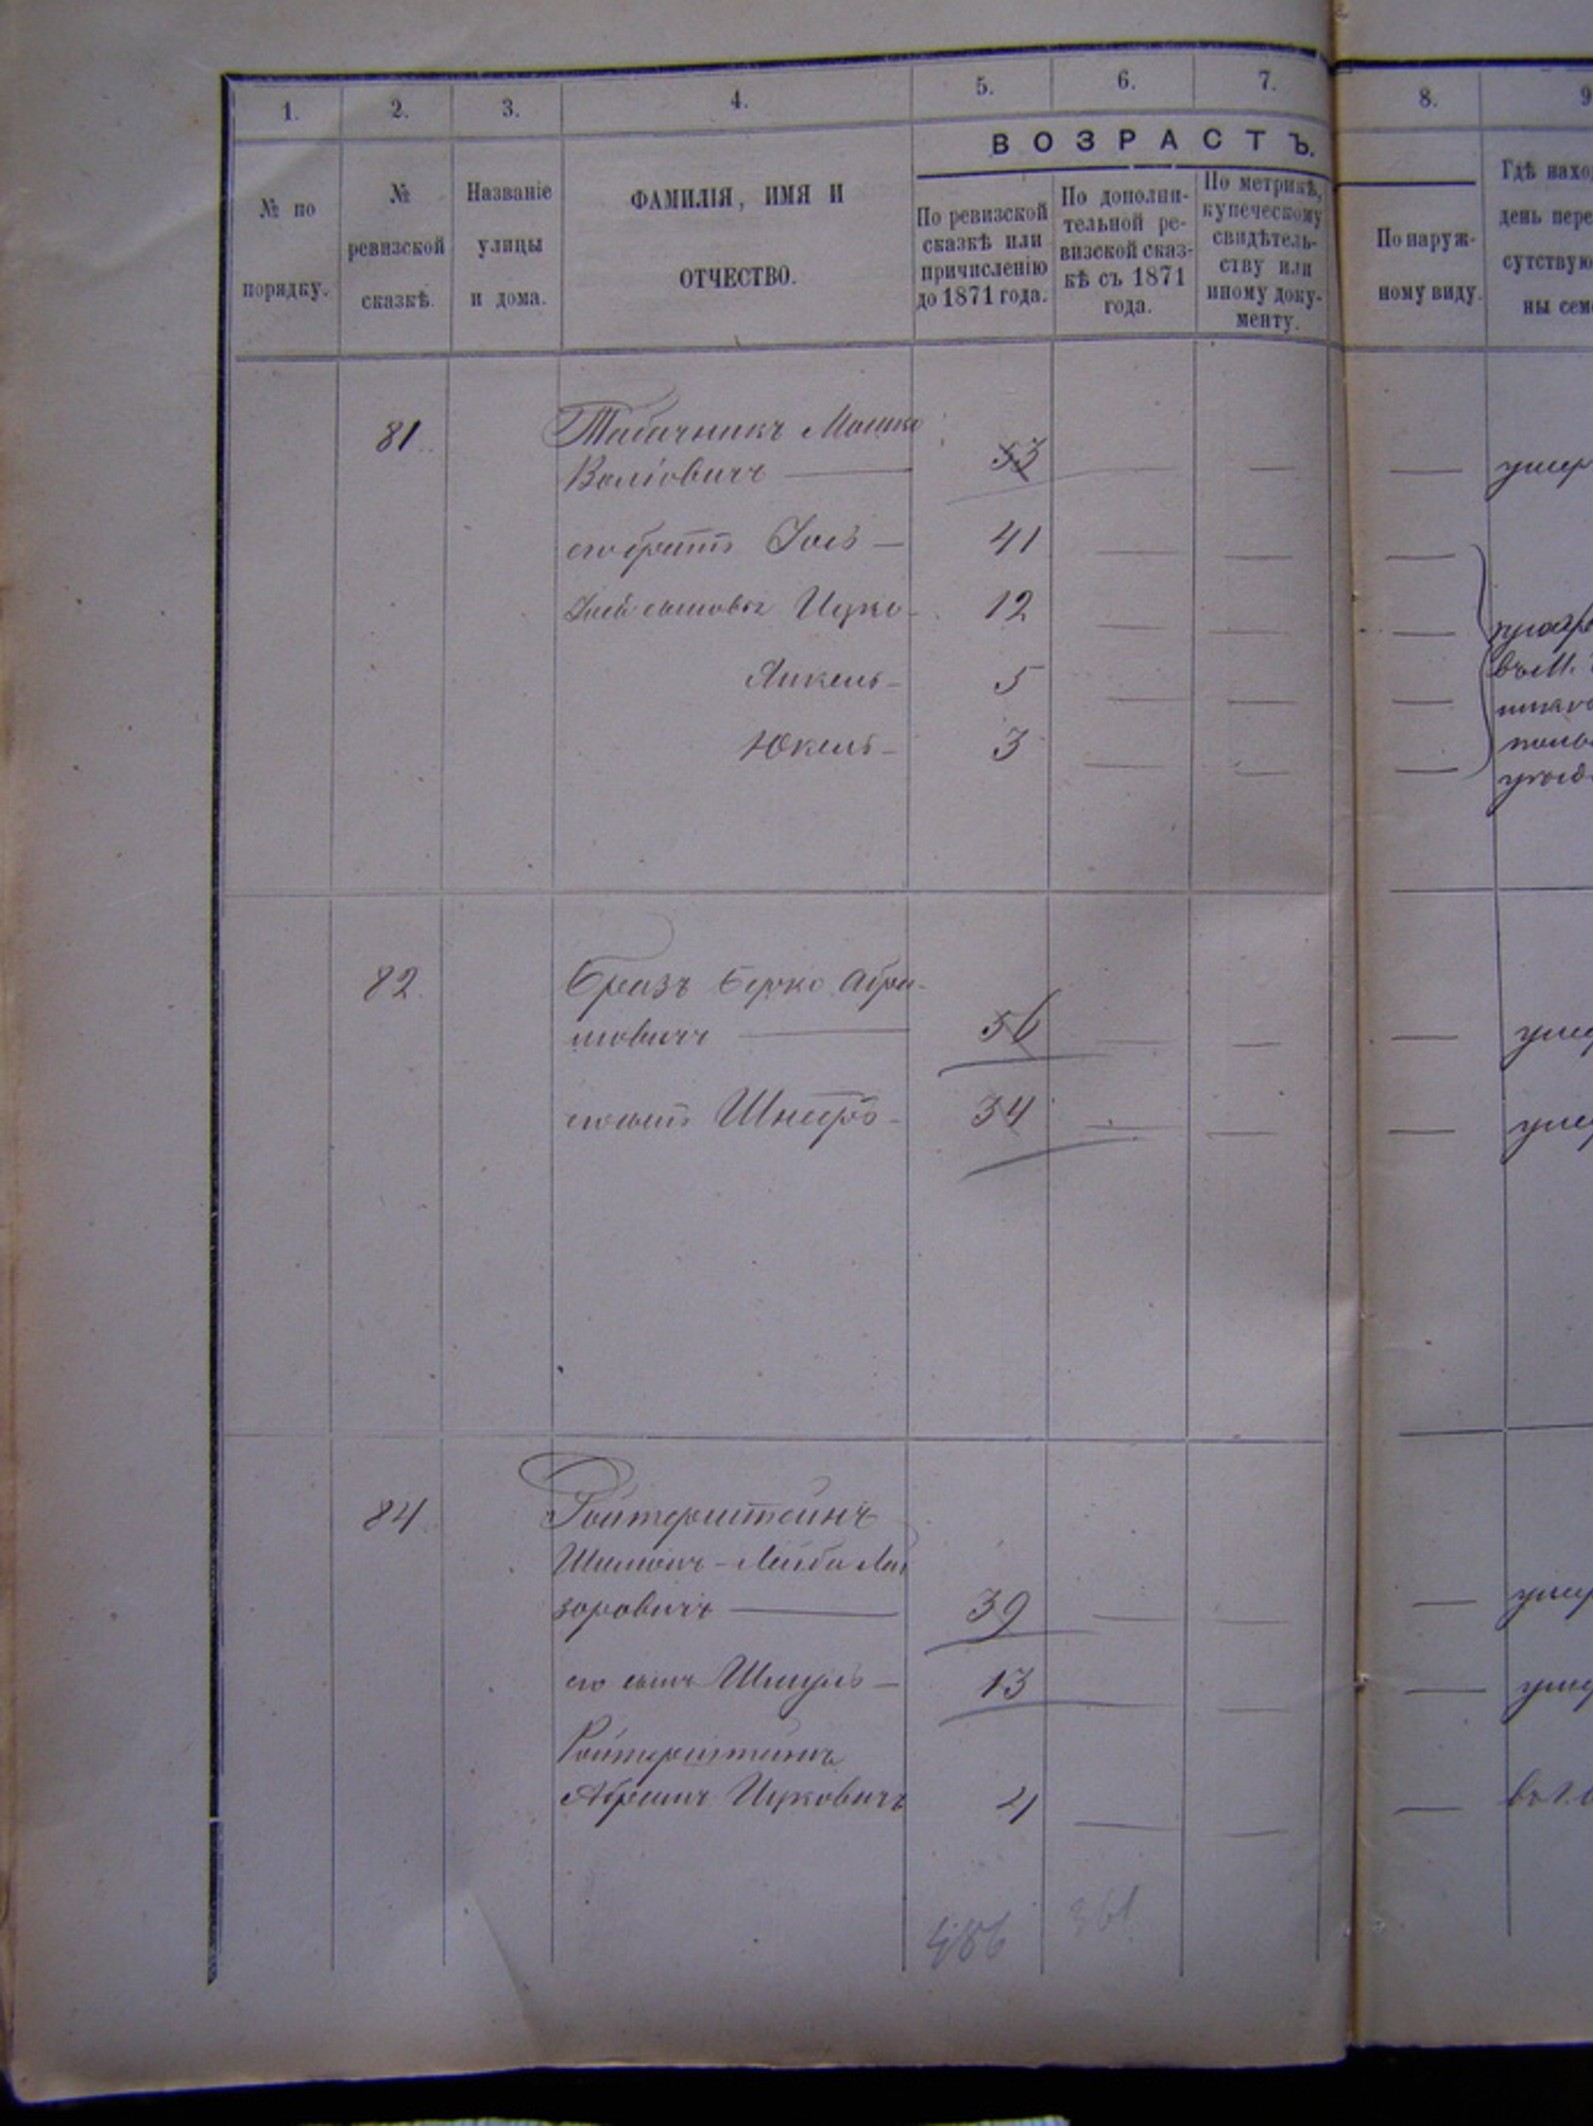 1. 2. 3. 4. 5. 6. 7. 8. 9
ВОЗРАСТЪ.
№ по порядку.
№ ревизской сказкѣ.
Названіе улицы и дома.
ФАМИЛІЯ, ИМЯ И
ОТЧЕСТВО.
По ревизской
сказкѣ или
причисленію
до 1871 года.
По дополни-
тельной ре-
визской сказ-
кѣ съ 1871
года.
По метрикѣ,
купеческому
свидѣтель-
ству или
иному доку-
менту.
По наруж-
ному виду.
Гдѣ нахо
день пере
сутствую
ны сем
81 Табачникъ Мошко
Волговичъ — 53 — — — умер
его братъ Іось — 41 — — —
Іося сыновья Ицко — 12 — — —
Янкель — 5 — — —
Юкель — 3 — — —
82 Бразъ Берко Абра-
мовичъ — 56 — — — уме
его сынъ Шнееръ — 34 — — — уме
84 Ройтерштейнъ
Шимонъ-Лейба Лей
зоровичъ — 39 — — — умер
его сынъ Шмуль — 13 — — — уме
Ройтерштейнъ
Абрамъ Ицковичъ 4 — — —
361